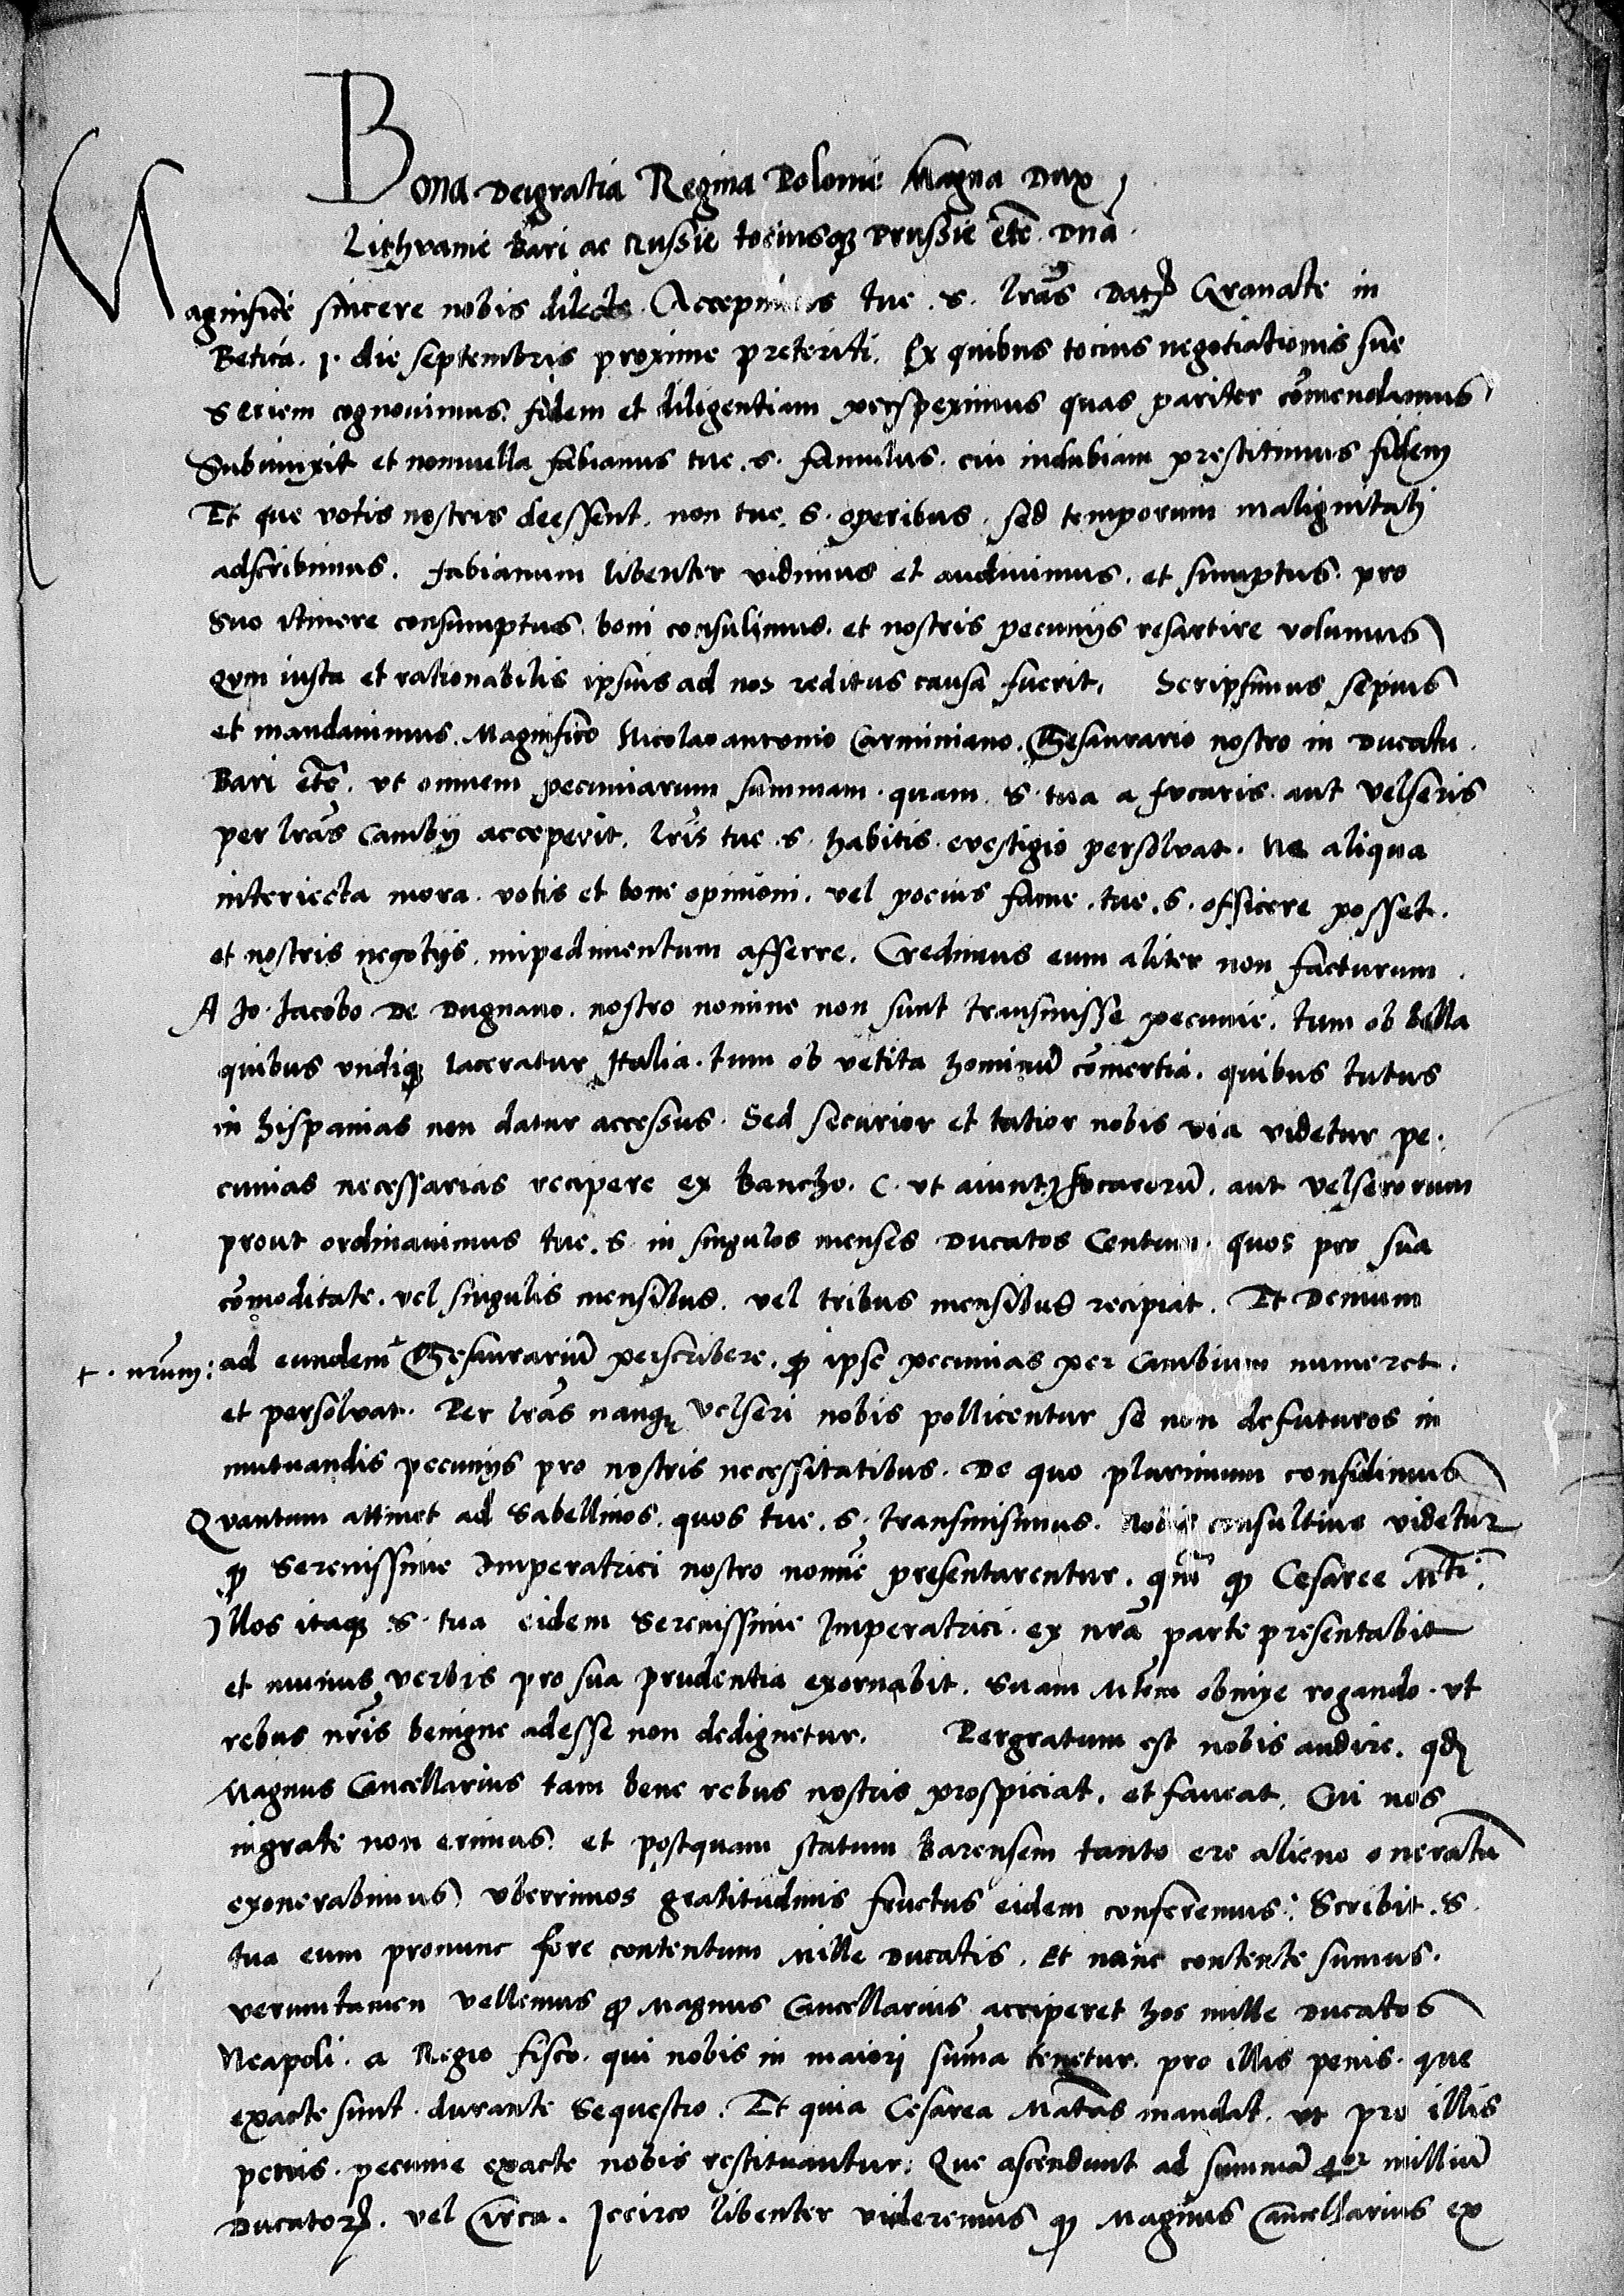 Bona Dei gratia Regina Polonie Magna Dux
Lithvanie Bari ac Russie tociusq Prussie etc̄ Dnā
Magnifice sincere nobis dilecte. Accepimus tue .S. lrãs Datꝝ Granate in
Betica .1. die septembris proxime preteriti. Ex quibus tocius negotiationis sue
seriem cognouimus: fidem et diligentiam perspeximus quas pariter cõmendamus
Subiunxit et nonnulla fabianus tue .S. famulus. cui indubiam prestitimus fidem
Et que votis nostris deessent. non tue .S. operibus. sed temporum malignitati
adscribimus. fabianum libenter vidimus et audiuimus. et sumptus pro
suo itinere consumptus. boni consulimus. et nostris pecunijs resartire volumus
qum iusta et rationabilis ipsius ad nos reditus causa fuerit. Scripsimus sepius
et mandauimus. Magnifico Nicolao antonio Carminiano. Thesaurario nostro in Ducatu
Bari etc̄. vt omnem pecuniarum summam. quam S. tua a focaris. aut velseris
per lrãs Cambij acceperit. lris̃ tue .S. habitis. evestigio persolvat. Ne aliqua
interiecta mora. votis et bone opinioni. vel pocius fame. tue .S. officere posset.
et nostris negotijs. impedimentum afferre. Credimus eum aliter non facturum.
A Jo. Jacobo de Dugnano. nostro nomine non sunt transmisse pecunie. tum ob bella
quibus vndiq laceratur Italia. tum ob vetita hominũ cõmertia. quibus tutus
in hispanias non datur accessus. Sed securior et tutior nobis via videtur pe-
cunias necessarias recipere ex bancho. (vt aiunt) focarorũ. aut velserorum
prout ordinauimus tue .S. in singulos menses Ducatos Centum. quos pro sua
cõmoditate. vel singulis mensibus. vel tribus mensibus recipiat. Et Demum
+. nrũm: ad eundem + Thesaurariũ perscribere. ꝙ ipse pecunias per Cambium numeret.
et persolvat. Per lrãs nanq velseri nobis pollicentur se non defuturos in
mutuandis pecunijs pro nostris necessitatibus. De quo plurimum confidimus
Quantum attinet ad Sabellinos. quos tue .S. transmisimus. Nobis consultius videtur
ꝙ Serenissime Imperatrici nostro nomĩe presentarentur. qm̃ ꝙ Cesaree Mti.
Illos itaq S. tua eidem Serenissime Imperatrici. ex nrã parte presentabit
et munus verbis pro sua prudentia exornabit. Suam Mtem obnixe rogando. vt
rebus nris̃ benigne adesse non dedignetur. Pergratum est nobis audire. qd
Magnus Cancellarius tam bene rebus nostris prospiciat. et faueat. Cui nos
ingrate non erimus. et postquam statum Barensem tanto ere alieno oneratũ
exonerabimus) vberrimos gratitudinis fructus eidem conferemus: Scribit .S.
tua eum pronunc fore contentum Mille Ducatis. Et nunc contente sumus.
verumtamen vellemus ꝙ Magnus Cancellarius acciperet hos mille Ducatos
Neapoli. a Regio fisco. qui nobis in maiori sum̃a tenetur. pro illis penis. que
exacte sunt. durante Sequestro. Et quia Cesarea Matas mandat. vt pro illis
penis. pecunie exacte nobis restituantur: Que ascendunt ad summã 4or milliũ
Ducatorꝝ. vel Circa. Iccirco libenter videremus ꝙ Magnus Cancellarius ex